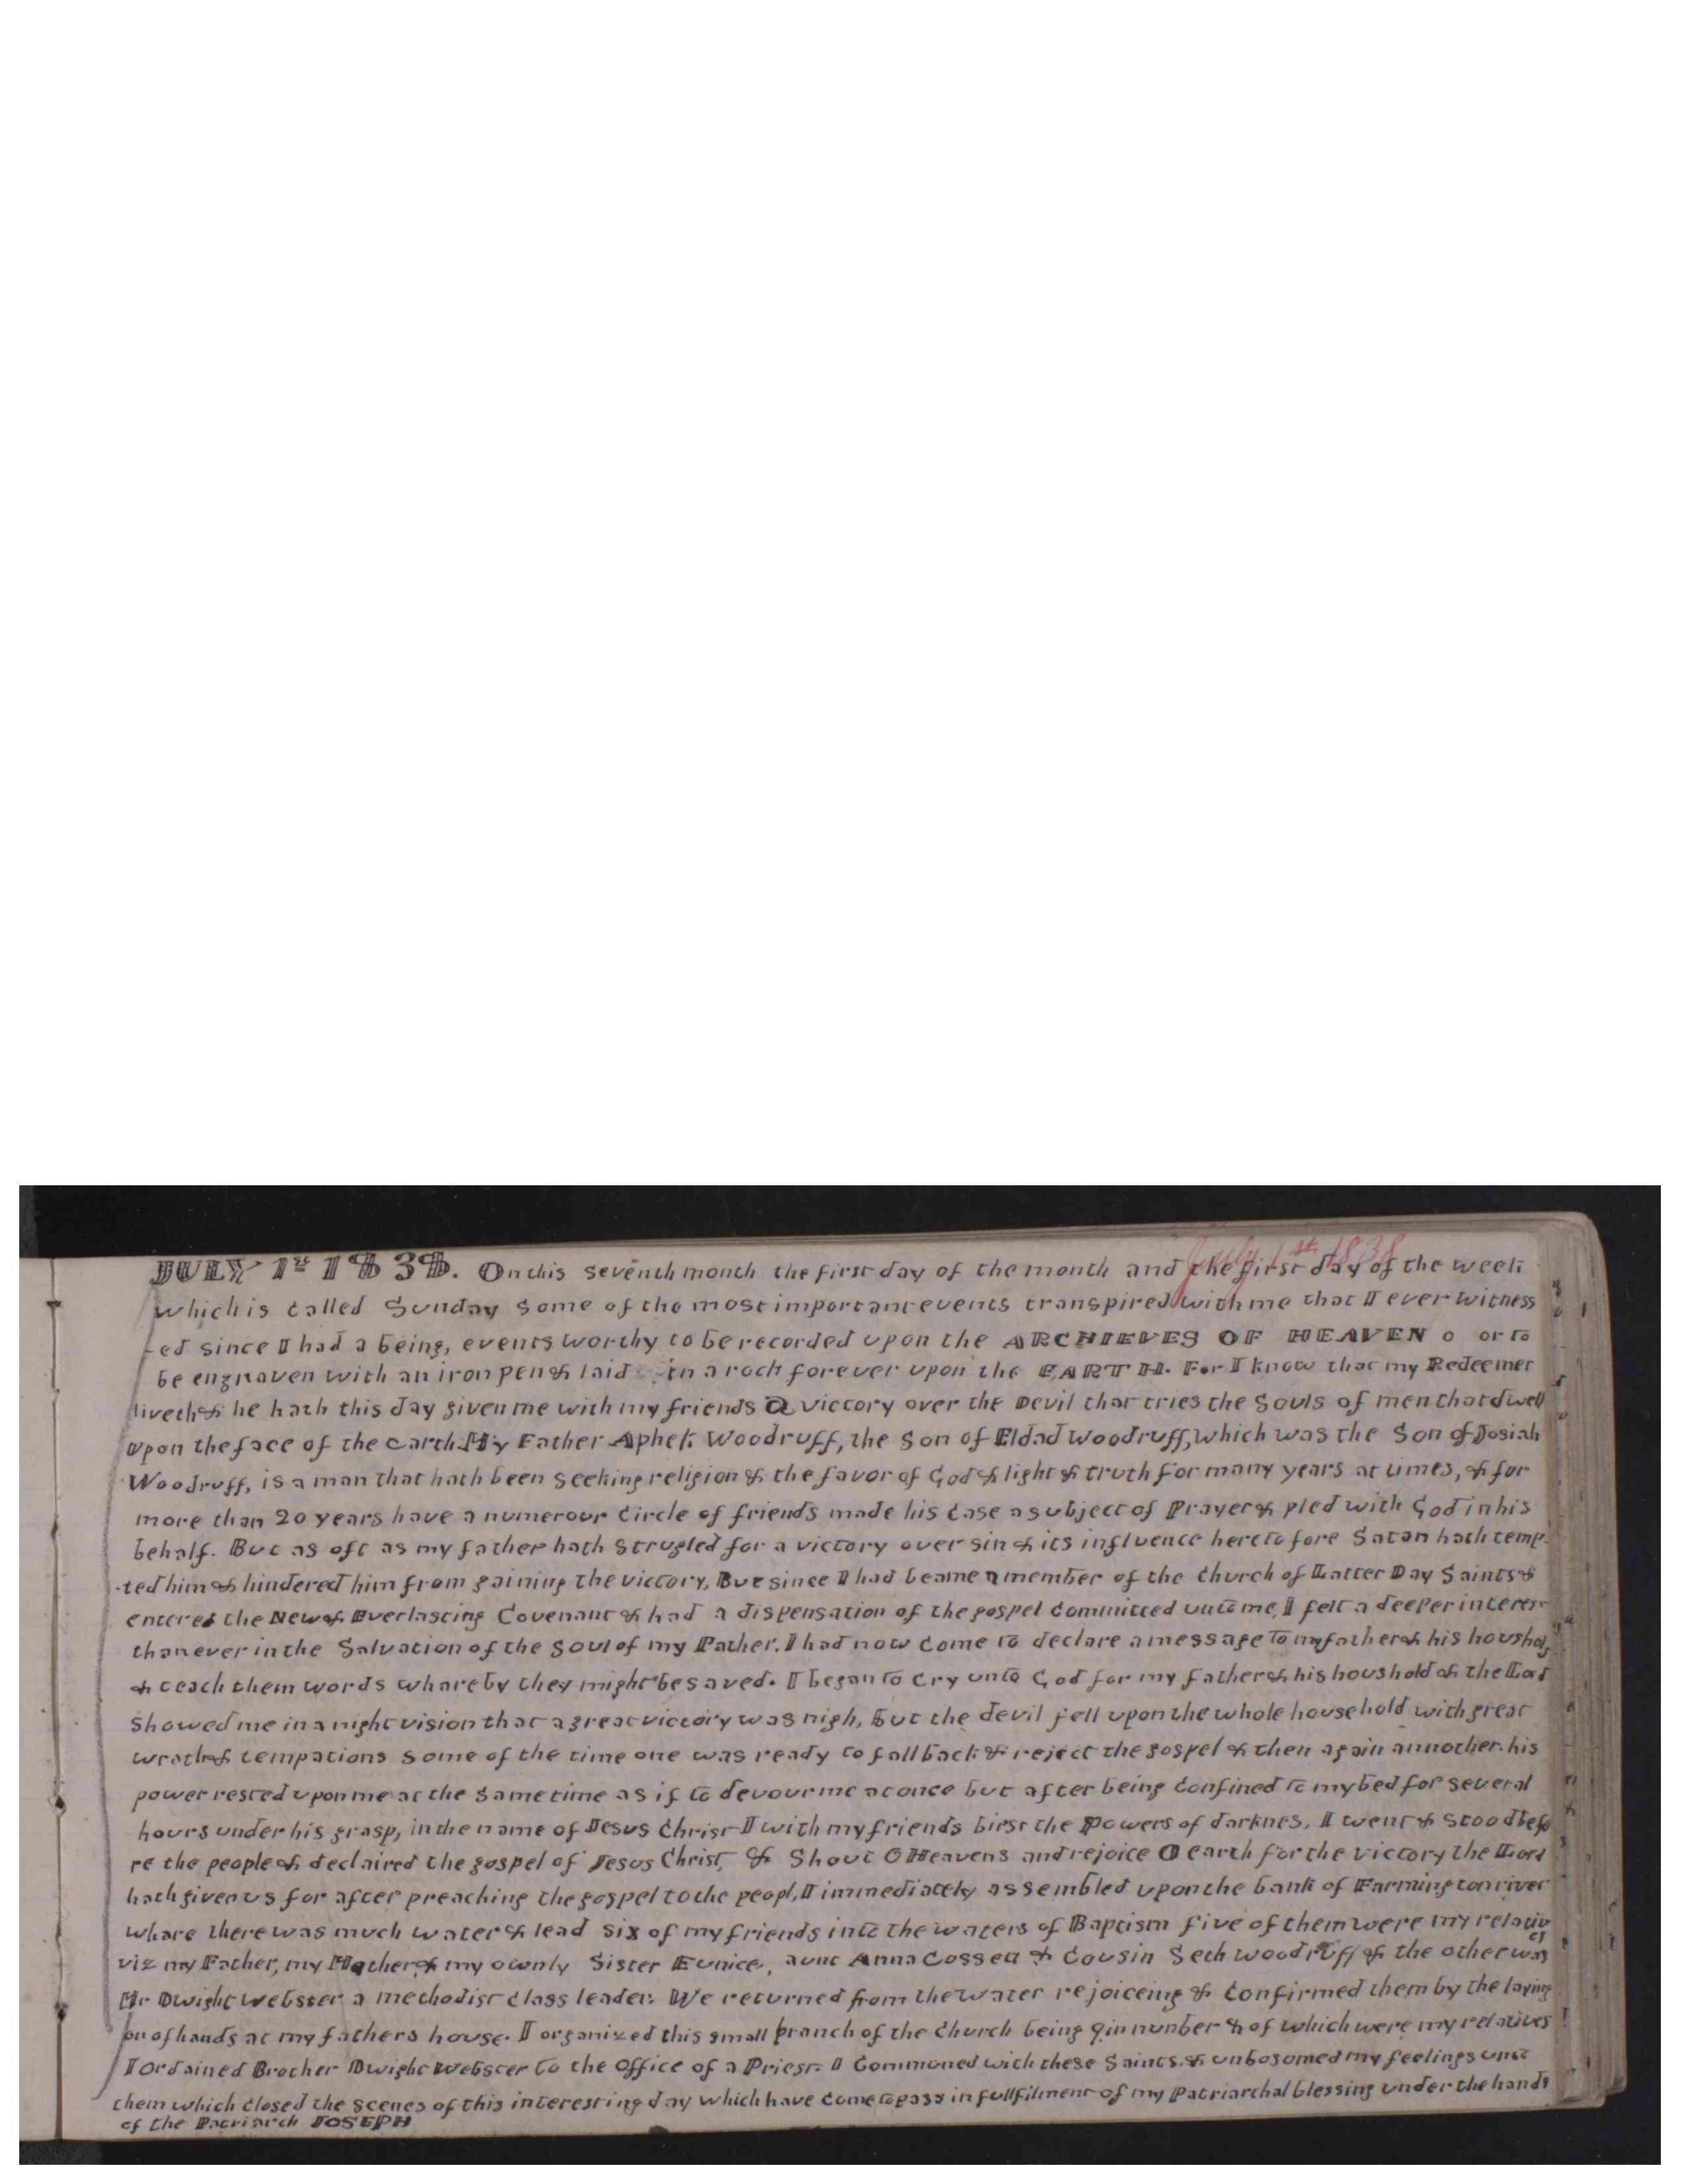 July 1st 1838
JULY 1st 1838. On this seventh month the first day of the month and the first day of the week
which is called Sunday some of the most important events transpired with me that I ever witness
-ed since I had a being, events worthy to be recorded upon the ARCHIEVES OF HEAVEN o or to
be engraven with an iron pen & laid in a rock forever upon the EARTH. For I know that my Redeemer
liveth & he hath this day given me with my friends a victory over the Devil that tries the Souls of men that dwell
upon the face of the earth. My Father Aphek Woodruff, the Son of Eldad Woodruff, which was the Son of Josiah
Woodruff, is a man that hath been seeking religion & the favor of God & light & truth for many years at times, & for
more than 20 years have a numerour circle of friends made his case a subject of Prayer & pled with God in his
behalf. But as oft as my father hath strugled for a victory over sin & its influence heretofore Satan hath temp-
-ted him & hindered him from gaining the victory, But since I had beame a member of the church of Latter Day Saints &
entered the New & Everlasting Covenant & had a dispensation of the gospel committed unto me, I felt a deeper interest
than ever in the Salvation of the soul of my Father. I had now come to declare a message to my father & his houshold,
& teach them words whareby they might be saved. I began to cry unto God for my father & his houshold & the Lord
showed me in a night vision that a great victory was nigh, but the devil fell upon the whole household with great
wrath & tempations some of the time one was ready to fall back & reject the gospel & then again annother. his
power rested upon me at the same time as if to devour me at once but after being confined to my bed for several
hours under his grasp, in the name of Jesus Christ I with my friends birst the Powers of darknes, I went & stood befo
re the people & declaired the gospel of Jesus Christ, & Shout O Heavens and rejoice O earth for the victory the Lord
hath given us for after preaching the gospel to the peopl, I immediately assembled upon the bank of Farmington river
whare there was much water & lead six of my friends into the waters of Baptism five of them were my relativ
es
viz my Father, my Mother & my ownly Sister Eunice, aunt Anna Cossett & Cousin Seth Woodruff & the other was
Mr Dwight Webster a methodist class leader. We returned from the water rejoiceing & confirmed them by the laying
on of hands at my fathers house. I organized this small branch of the church being 9 in nunber & of which were my relatives
I ordained Brother Dwight Webster to the office of a Priest. I Communed with these Saints & unbosomed my feelings unto
them which closed the scenes of this interesting day which have come to pass in fullfilment of my Patriarchal blessing under the hands
of the Patriarch JOSEPH